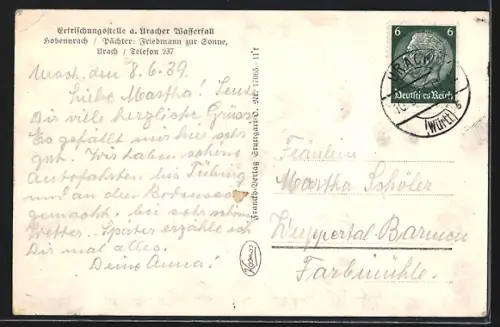 Erfrischungsstelle a. Uracher Wasserfall
Hohenurach / Pächter: Friedmann zur Sonne,
Urach / Telefon 237
Urach, den 8. 6. 39.
Liebe Martha! Sende
Dir viele herzliche Grüsse
Es gefällt mir hier sehr
gut. Wir haben schöne
Autofahrten bis Tübing.
und an den Bodensee
gemacht, bei sehr schönem
Wetter. Später erzähle ich
Dir mal alles.
Deine Anna!
Franckh-Verlag Stuttgart-O. Nr. 17065-11'f
Kosmos
6 6
Deutsches Reich
URACH
(Württ)
Fräulein
Martha Schöler
Wuppertal-Barmen
Farbmühle.